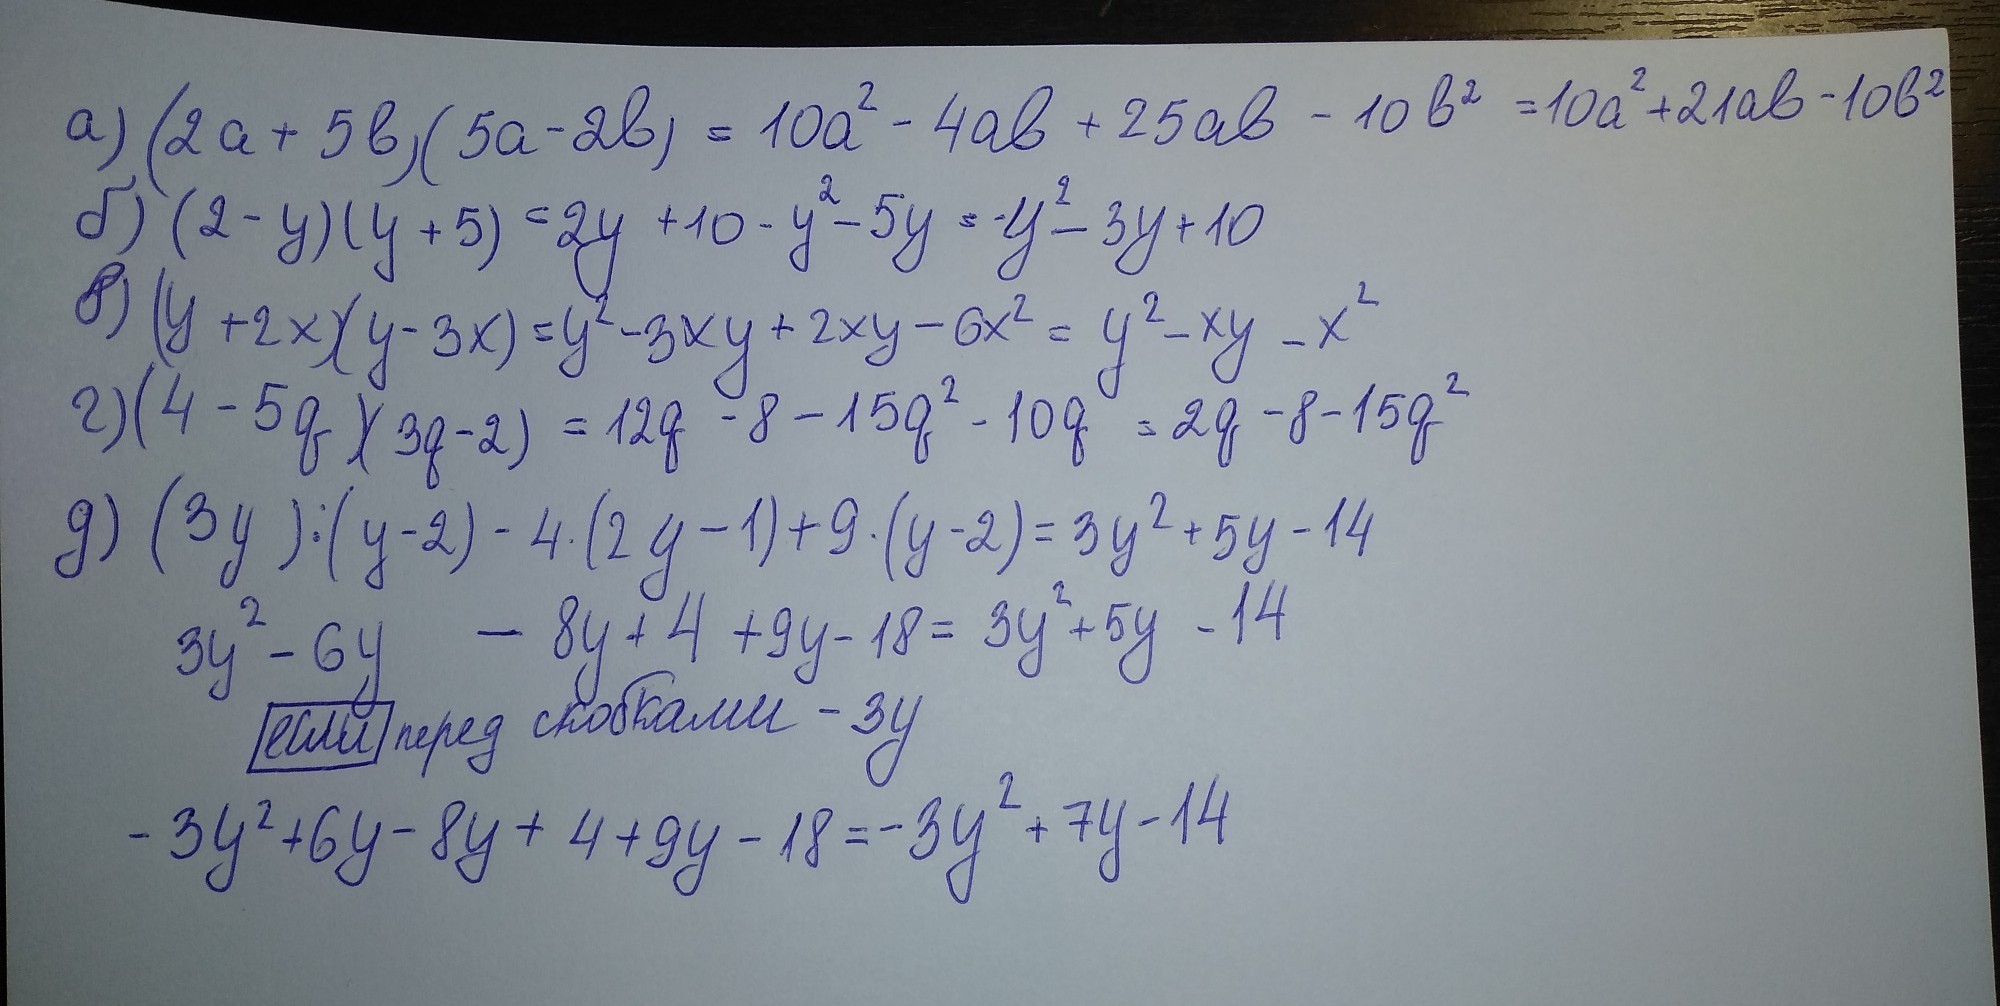 а) (2a + 5b)(5a - 2b) = 10a² - 4ab + 25ab - 10b² = 10a² + 21ab - 10b²
б) (2 - y)(y + 5) = 2y + 10 - y² - 5y = -y² - 3y + 10
в) (y + 2x)(y - 3x) = y² - 3xy + 2xy - 6x² = y² - xy - x²
г) (4 - 5q)(3q - 2) = 12q - 8 - 15q² - 10q = 2q - 8 - 15q²
д) (3y):(y - 2) - 4·(2y - 1) + 9·(y - 2) = 3y² + 5y - 14
3y² - 6y - 8y + 4 + 9y - 18 = 3y² + 5y - 14
если перед скобками - 3y
- 3y² + 6y - 8y + 4 + 9y - 18 = -3y² + 7y - 14